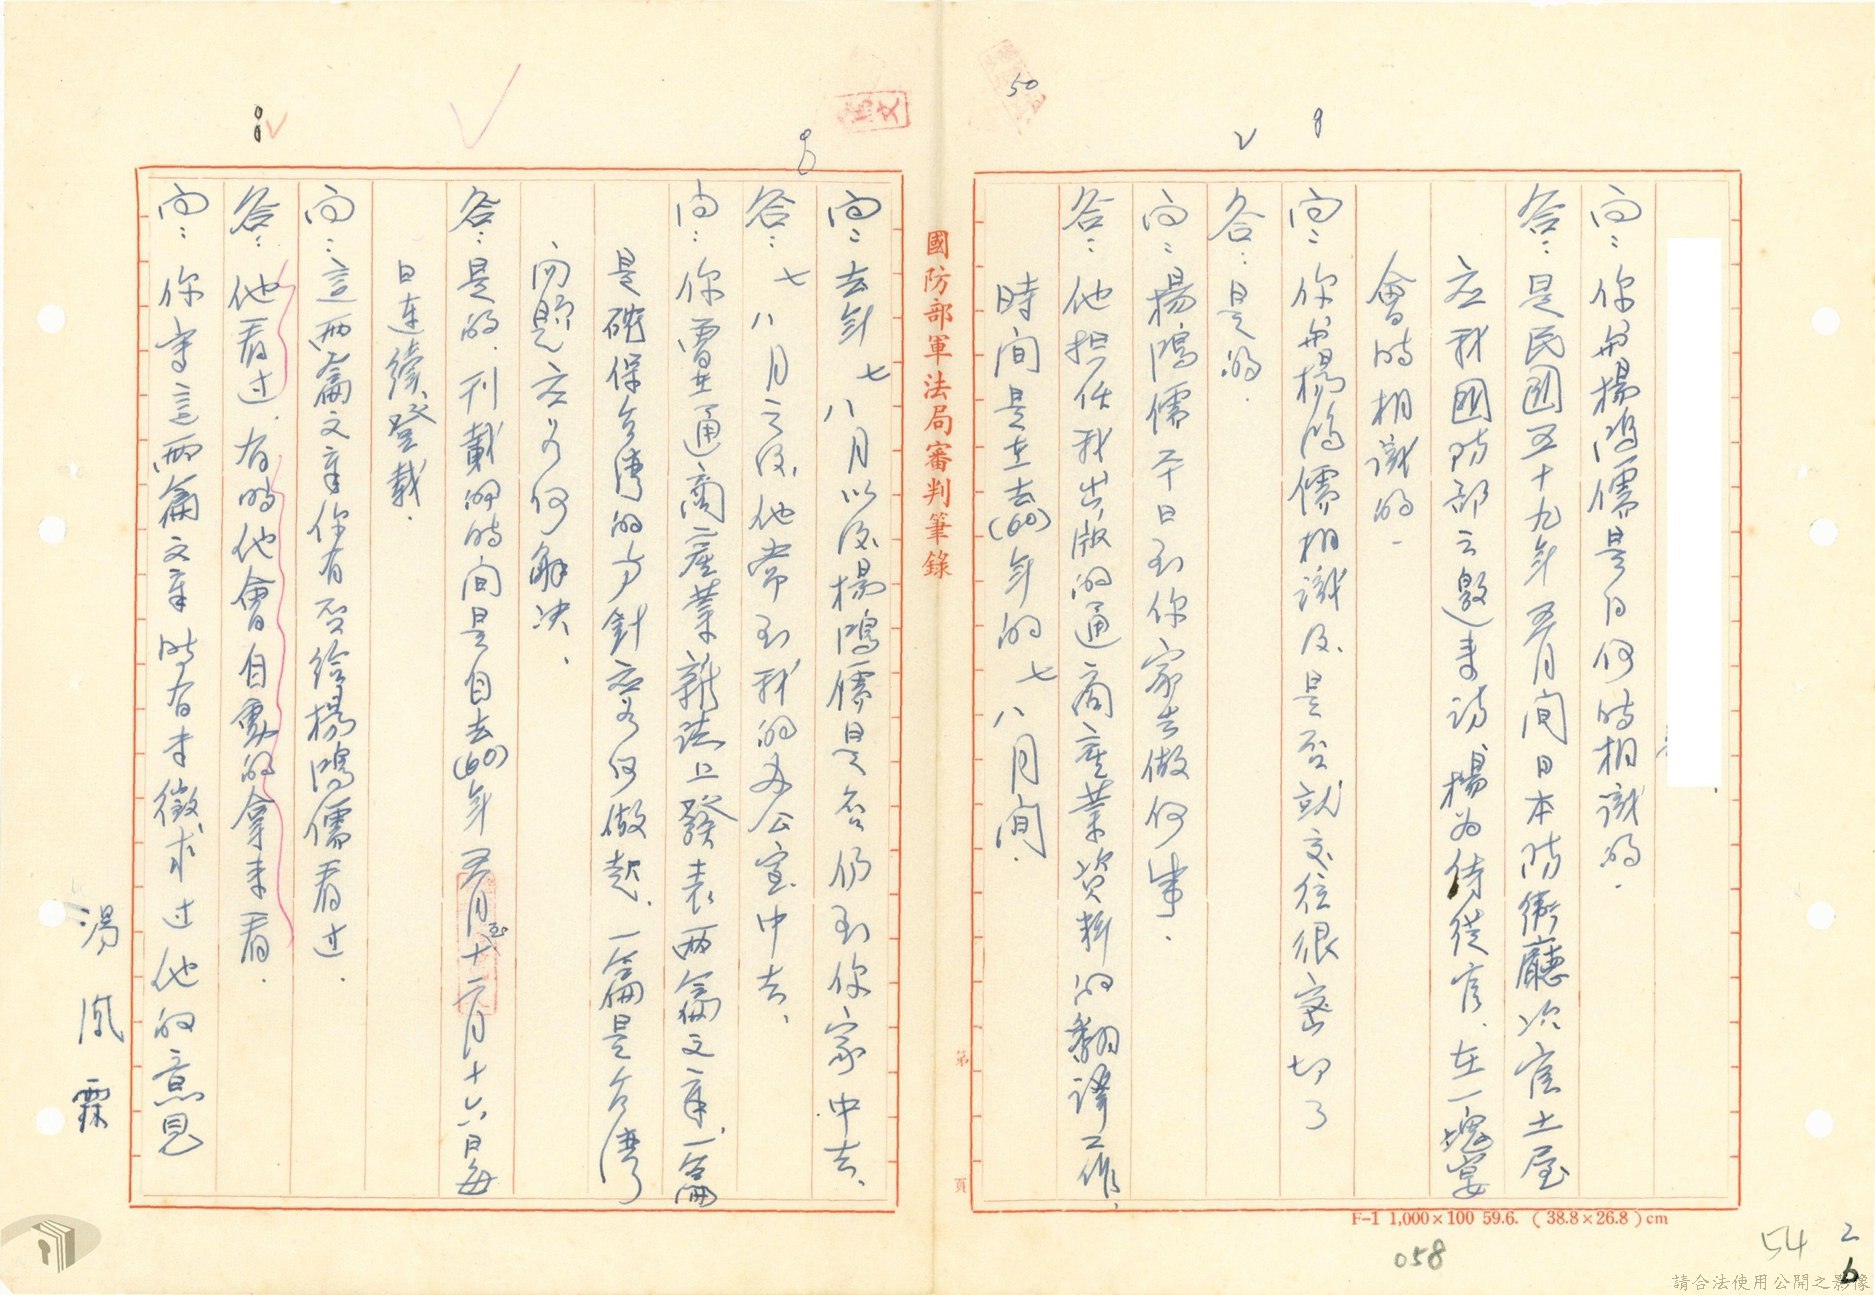 50
問：你與楊鴻儒是日何時相識的．
答：是民國五十九年五月間日本防衛廳次官土屋
应我國防部之邀來訪、楊為侍從官．在一塊宴
會時相識的．
問：你與楊鴻儒相識後是否就交往很密切了
答：是的．
問：楊鴻儒平日到你家去做何事．
答：他担任我出版的通商產業資料的翻譯工作．
時間是在去(60)年的七八月間．
國防部軍法局審判筆錄
第 頁
問：去年七八月以後楊鴻儒是否仍到你家中去．
答：七八月之後他常到我的办公室中去．
問：你曾在通商產業雜誌上發表兩篇文章、一篇
是確保台湾的方針应如何做起．一篇是台湾
问題应如何解決．
答：是的．刊載的時间是自去(60)年五月至十二月十六日每
日連續登載．
問：這兩篇文章你有否給楊鴻儒看过．
答：他看过．有時他會自動的拿來看．
問：你寫這兩篇文章時有未徵求过他的意見
湯 鳳 霖
F-1 1,000×100 59.6. (38.8×26.8)cm
058
54
2
6
請合法使用公開之影像